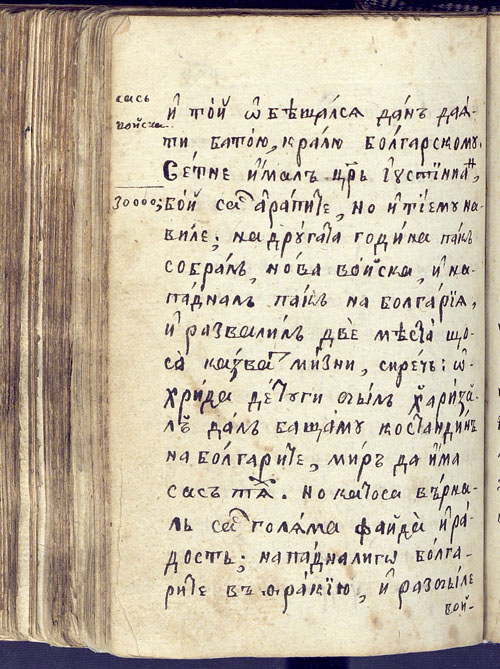 сась
войска
и҆ то́й ѡ҆бѣща́лся да́нъ дая́-
ти бато́ю, кра́лю болга́рскому.
Се́тне и҆ма́лъ цр҃ь і҆ꙋстїниа́нъ,
30000;
бо́й са а҆ра́пите, но и҆ ті́емꙋ на-
виле; на дрꙋ́гата годи́на па́къ
собра́лъ, но́ва во́йска, и҆ на-
па́дналъ па́къ на болга́рїя,
и҆ развали́лъ двѐ мѣ́ста що-
са̀ ка́зватъ ми́зни, сирѣ́чь: ѡ҆-
хри́да
лъ да́лъ баща́мꙋ костанди́нъ
на бо́лгарите, ми́ръ да и҆́ма
сасъ тя́хъ. но като́са вѣ́рна-
лъ са голя́ма файда̀ и҆ ра́-
дость; нападна́лигѡ бо́лга-
рите въ ѳра́кїю, и҆ разби́ле
вой-